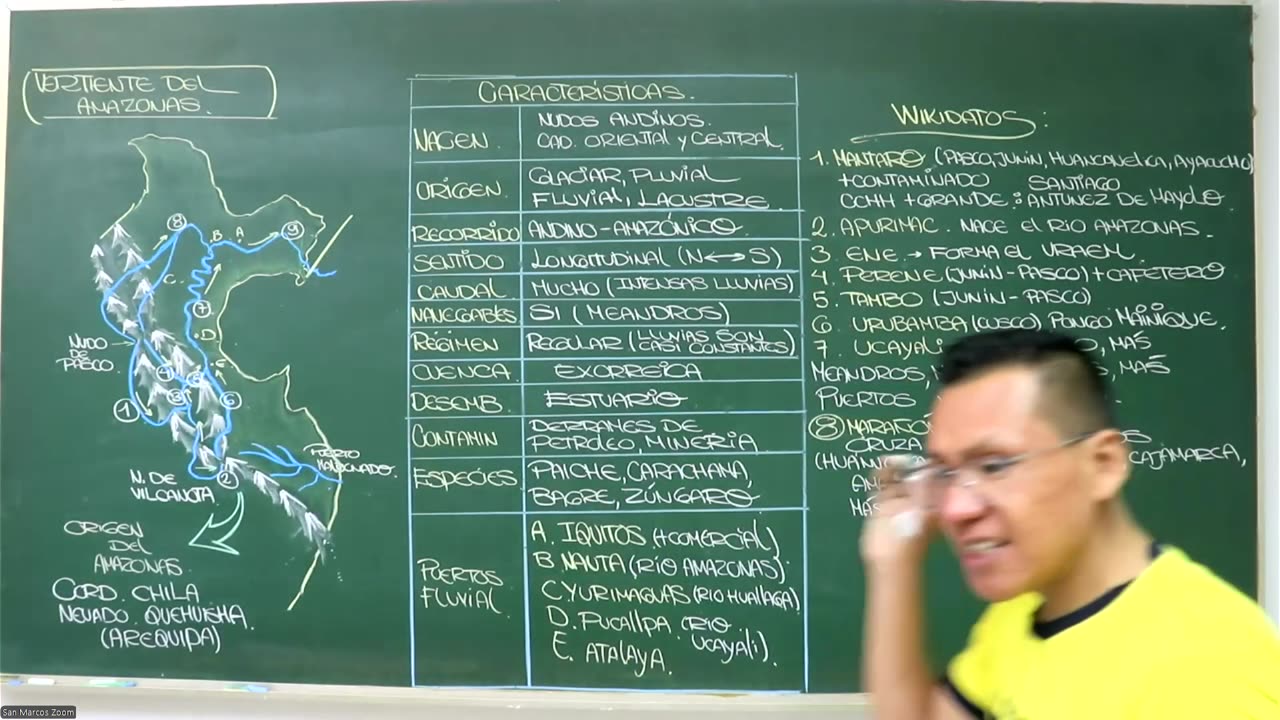 VERTIENTE DEL
AMAZONAS.
8
B
A
9
C.
7
D
NUDO
DE
PASCO.
E
4
5
3
6
1
2
N. DE
VILCANOTA
PUERTO
MALDONADO.
ORIGEN
DEL
AMAZONAS
CORD. CHILA
NEVADO QUEHUISHA
(AREQUIPA)
CARACTERÍSTICAS.
NACEN. NUDOS ANDINOS.
CAD. ORIENTAL y CENTRAL.
ORIGEN. GLACIAR, PLUVIAL
FLUVIAL, LACUSTRE.
RECORRIDO ANDINO-AMAZÓNICO.
SENTIDO LONGITUDINAL (N↔S)
CAUDAL. MUCHO (INTENSAS LLUVIAS)
NAVEGABLES SI (MEANDROS)
RÉGIMEN REGULAR (LLUVIAS SON
CASI CONSTANTES)
CUENCA. EXORREICA
DESEMB. ESTUARIO
CONTAMIN DERRAMES DE
PETROLEO, MINERIA
ESPECIES. PAICHE, CARACHAMA,
BAGRE, ZÚNGARO
PUERTOS
FLUVIAL.
A. IQUITOS (+COMERCIAL)
B NAUTA (RÍO AMAZONAS)
C YURIMAGUAS (RIO HUALLAGA)
D. PUCALLPA (RIO
UCAYALI).
E. ATALAYA.
WIKIDATOS:
1. MANTARO (PASCO, JUNÍN, HUANCAVELICA, AYACUCHO)
+CONTAMINADO SANTIAGO
CCHH +GRANDE: ANTUNEZ DE MAYOLO.
2. APURIMAC. NACE EL RIO AMAZONAS.
3 ENE → FORMA EL VRAEM.
4 PERENE (JUNÍN-PASCO) +CAFETERO
5. TAMBO (JUNÍN-PASCO)
6. URUBAMBA (CUSCO) PONGO MAINIQUE.
7. UCAYALI MÁS
MEANDROS, MÁS
PUERTOS
8 MARAÑÓN
CRUZA
CAJAMARCA,
MÁS
San Marcos Zoom